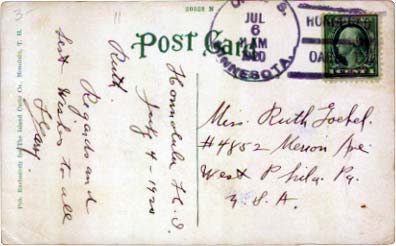 3
11
20528 N
Post Card
JUL
6
AM
1920
U. S. S.
MINNESOTA.
HONOLULU
OAHU
Pub. Exclusively by The Island Curio Co., Honolulu, T. H.
Honolulu H. I.
July 4 - 1920
Ruth.
Regards and
best wishes to all
Miss. Ruth Goebel.
#4852 Merion Ave
West Phila. Pa.
U. S. A.